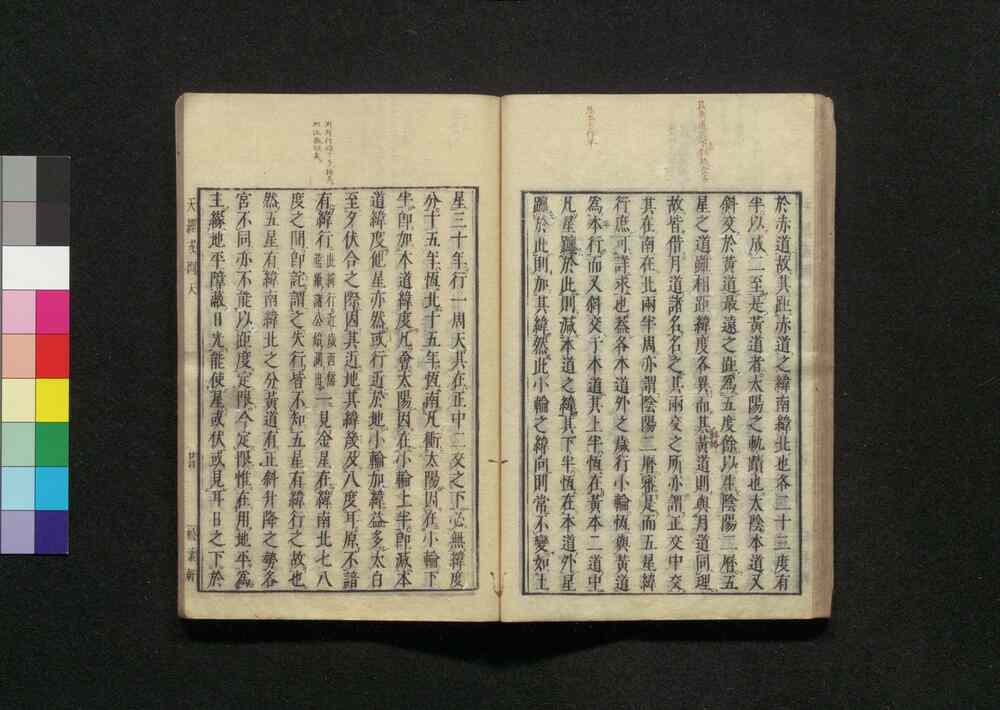 於赤道故其距赤道之緯南緯北也各二十三度有
半以成二至是黃道者太陽之軌蹟也太陰本道又
斜交於黃道最遠之距爲五度餘以生陰陽二曆五
星之道雖相距緯度各異而其黃道則與月道同理
故皆借月道諸名名之其兩交之所亦謂正交中交
其在南在北兩半周亦謂陰陽二曆審是而五星緯
行庶可詳求也蓋各本道外之歲行小輪恆與黃道
爲本行而又斜交于本道其上半恆在黃本二道中
凡星躔於此則減本道之緯其下半恆在本道外星
躔於此則加其緯然此小輪之緯向則常不變如土
星三十年行一周天其在正中二交之下必無緯度
分十五年恆北十五年恆南凡衝太陽因在小輪下
半卽加本道緯度凡會太陽因在小輪上半卽減本
道緯度他星亦然或行近於地小輪加緯益多太白
至夕伏合之際因其近地其緯幾及八度耳原不諳
有緯行此緯行近歲西儒一見金星在緯南北七八
度之間卽詫謂之失行皆不知五星有緯行之故也
然五星有緯南緯北之分黃道有正斜升降之勢各
宮不同亦不能以距度定限今定限惟在用地平爲
主緣地平障蔽日光能使星或伏或見耳日之下於
天經或問 天